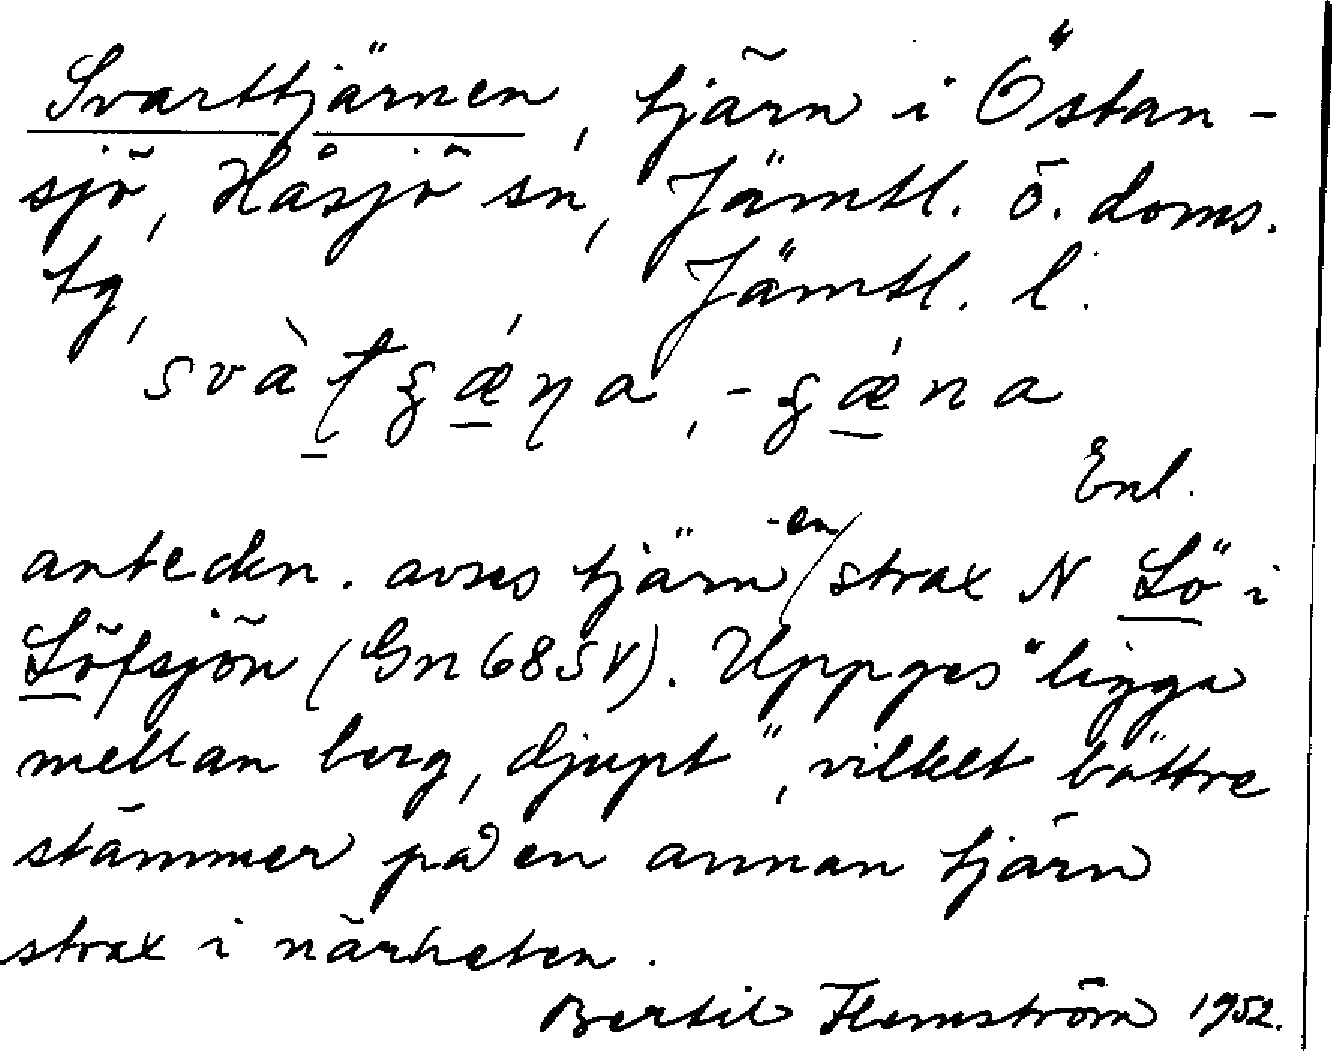 Svarttjärnen, tjärn i Östan-
sjö, Håsjö sn, Jämtl. ö. doms.
tg, Jämtl. l.
Enl.
anteckn. avses tjärnen strax N Lö i
Löfsjön (Gn 68 SV). Uppges "ligga
mellan berg, djupt", vilket bättre
stämmer på en annan tjärn
strax i närheten.
Bertil Flemström 1952.